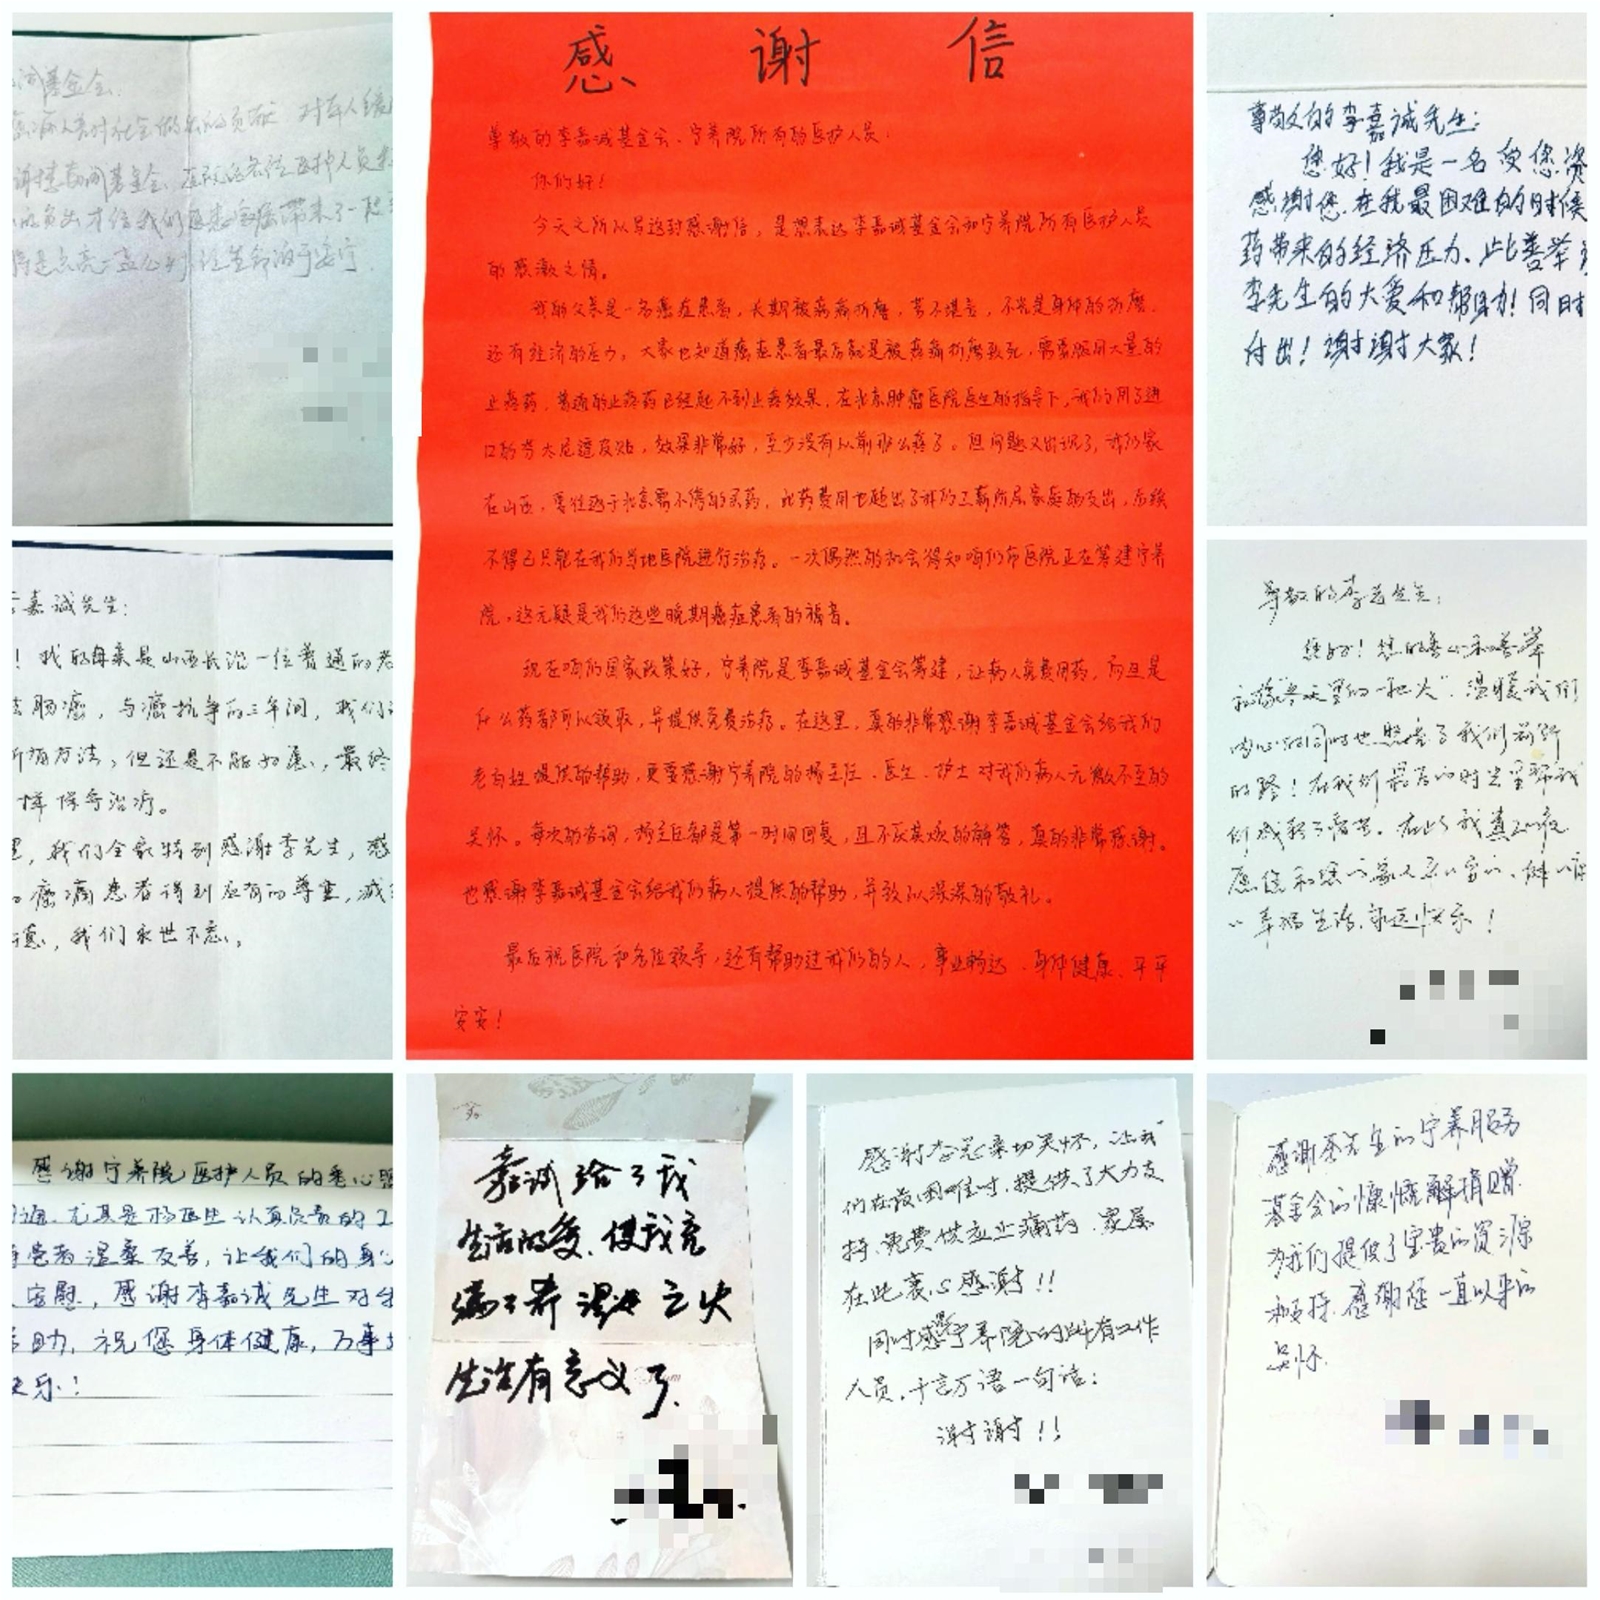 感谢信
尊敬的李嘉诚基金会、宁养院所有的医护人员:
你们好!
今天之所以写这封感谢信,是想表达李嘉诚基金会和宁养院所有医护人员
的感激之情。
我的父亲是一名癌症患者,长期被病痛折磨,苦不堪言,不光是身体的折磨,
还有经济的压力。大家也知道癌症患者最后就是被疼痛折磨致死,需要服用大量的
止疼药,普通的止疼药已经起不到止疼效果,在北京肿瘤医院医生的指导下,我们用了进
口的芬太尼透皮贴,效果非常好,至少没有以前那么疼了。但问题又出现了,我们家
在山西,要往返于北京需不停的买药,此药费用也超出了我的工薪所属家庭的支出,后续
不得已只能在我们当地医院进行治疗。一次偶然的机会得知咱们市医院正在筹建宁养
院,这无疑是我们这些晚期癌症患者的福音。
现在咱们国家政策好,宁养院是李嘉诚基金会筹建,让病人免费用药,而且是
什么药都可以领取,并提供免费治疗。在这里,真的非常感谢李嘉诚基金会给我们
老百姓提供的帮助,更要感谢宁养院的杨主任、医生、护士对我们病人无微不至的
关怀。每次的咨询,杨主任都是第一时间回复,且不厌其烦的解答,真的非常感谢。
也感谢李嘉诚基金会给我们病人提供的帮助,并致以深深的敬礼。
最后祝医院和各位领导,还有帮助过我们的人,事业畅达、身体健康、平平
安安!
诚基金会
尊敬的李嘉诚先生:
您好!我是一名受您资
感谢您在我最困难的时候
药带来的经济压力、此善举
李先生的大爱和帮助!同时
付出!谢谢大家!
嘉诚先生:
!我的母亲是山西长治一位普通的老
肠癌,与癌抗争的三年间,我们
所有方法,但还是不能如愿,最终
保守治疗。
里,我们全家特别感谢李先生,感
癌痛患者得到应有的尊重,减
意,我们永世不忘。
尊敬的李先生:
您好!您的善心和善举
就像冬天里的一把火”温暖我们
内心的同时也照亮了我们前行
的路!在我们最苦的时光里帮我
们减轻了痛苦。在此我真心的祝
愿您和您的家人平平安安、健康
幸福生活永远快乐!
感谢宁养院医护人员的悉心照
尤其是杨医生认真负责的工
患者温柔友善,让我们的身心
安慰,感谢李嘉诚先生对
助,祝您身体健康,万事
快乐!
嘉诚给了我
生活的爱,使我充
满了希望之火
生活有意义了.
感谢李总亲切关怀,让我
们在最困难时,提供了大力支
持,免费供应止痛药,家属
在此衷心感谢!!
同时感谢宁养院的所有工作
人员,千言万语一句话:
谢谢!!
感谢李先生的宁养服务
基金会的慷慨解捐赠.
为我们提供了宝贵的资源
和支持.感谢您一直以来的
关怀.